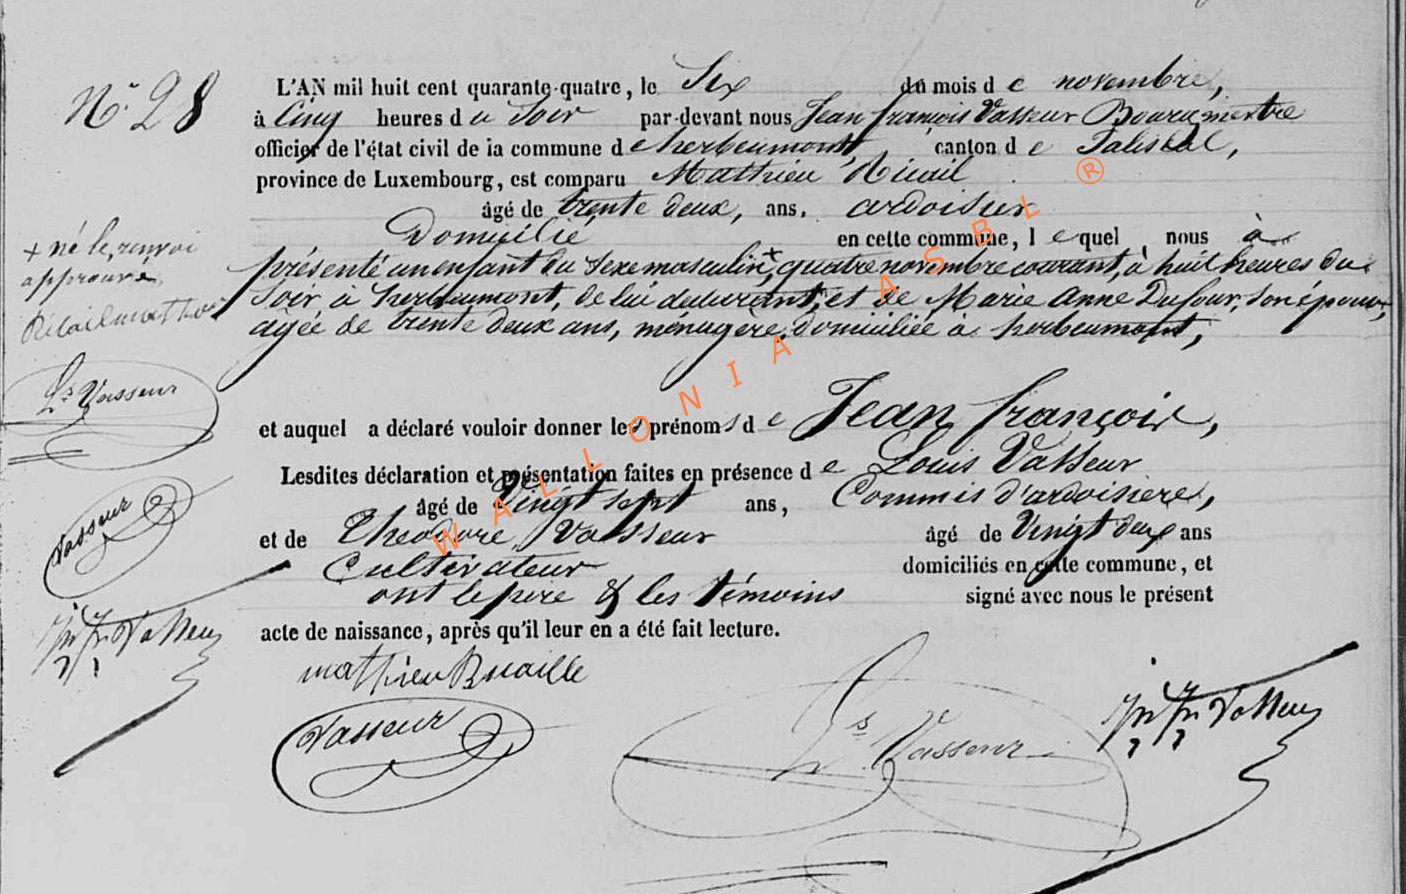 N.° 28
L'AN mil huit cent quarante-quatre, le Six du mois d e novembre,
à Cinq heures d u Soir par-devant nous Jean françois Vasseur Bourgmestre
officier de l'état civil de la commune d e herbeumont, canton d e Paliseul,
province de Luxembourg, est comparu Mathieu
âgé de trente deux, ans, ardoisier
Domicilié en cette commune, l e quel nous à
présenté un enfant du Sexe masculin, + quatre novembre courant, à huit heures du
Soir à herbeumont, de lui déclarant, et de Marie Anne Dufour, Son épouse,
agée de trente deux ans, ménagère, domiciliée à herbeumont,
+ né le, renvoi
approuvé
L.s Vasseur
Vasseur
Jn Fr Vasseur
et auquel a déclaré vouloir donner les prénoms d e Jean françois,
Lesdites déclaration et présentation faites en présence d e Louis Vasseur
âgé de Vingt sept ans, Commis d'ardoisière,
et de Theodore Vasseur âgé de Vingt deux ans
Cultivateur domiciliés en cette commune, et
ont le père & les témoins signé avec nous le présent
acte de naissance, après qu'il leur en a été fait lecture.
mathieu
Vasseur
L.s Vasseur
Jn Fr Vasseur
WALLONIA ASBL ®